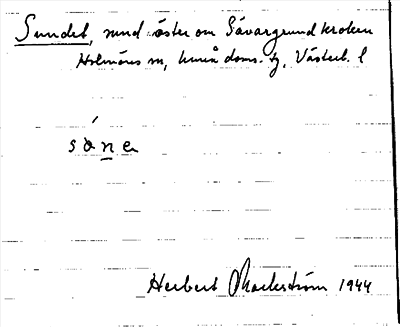 Sundet, sund öster om Sävargrundkroken
Holmöns sn, Umeå doms. tg, Västerb. l
sa̍ne
Herbert Markström 1944